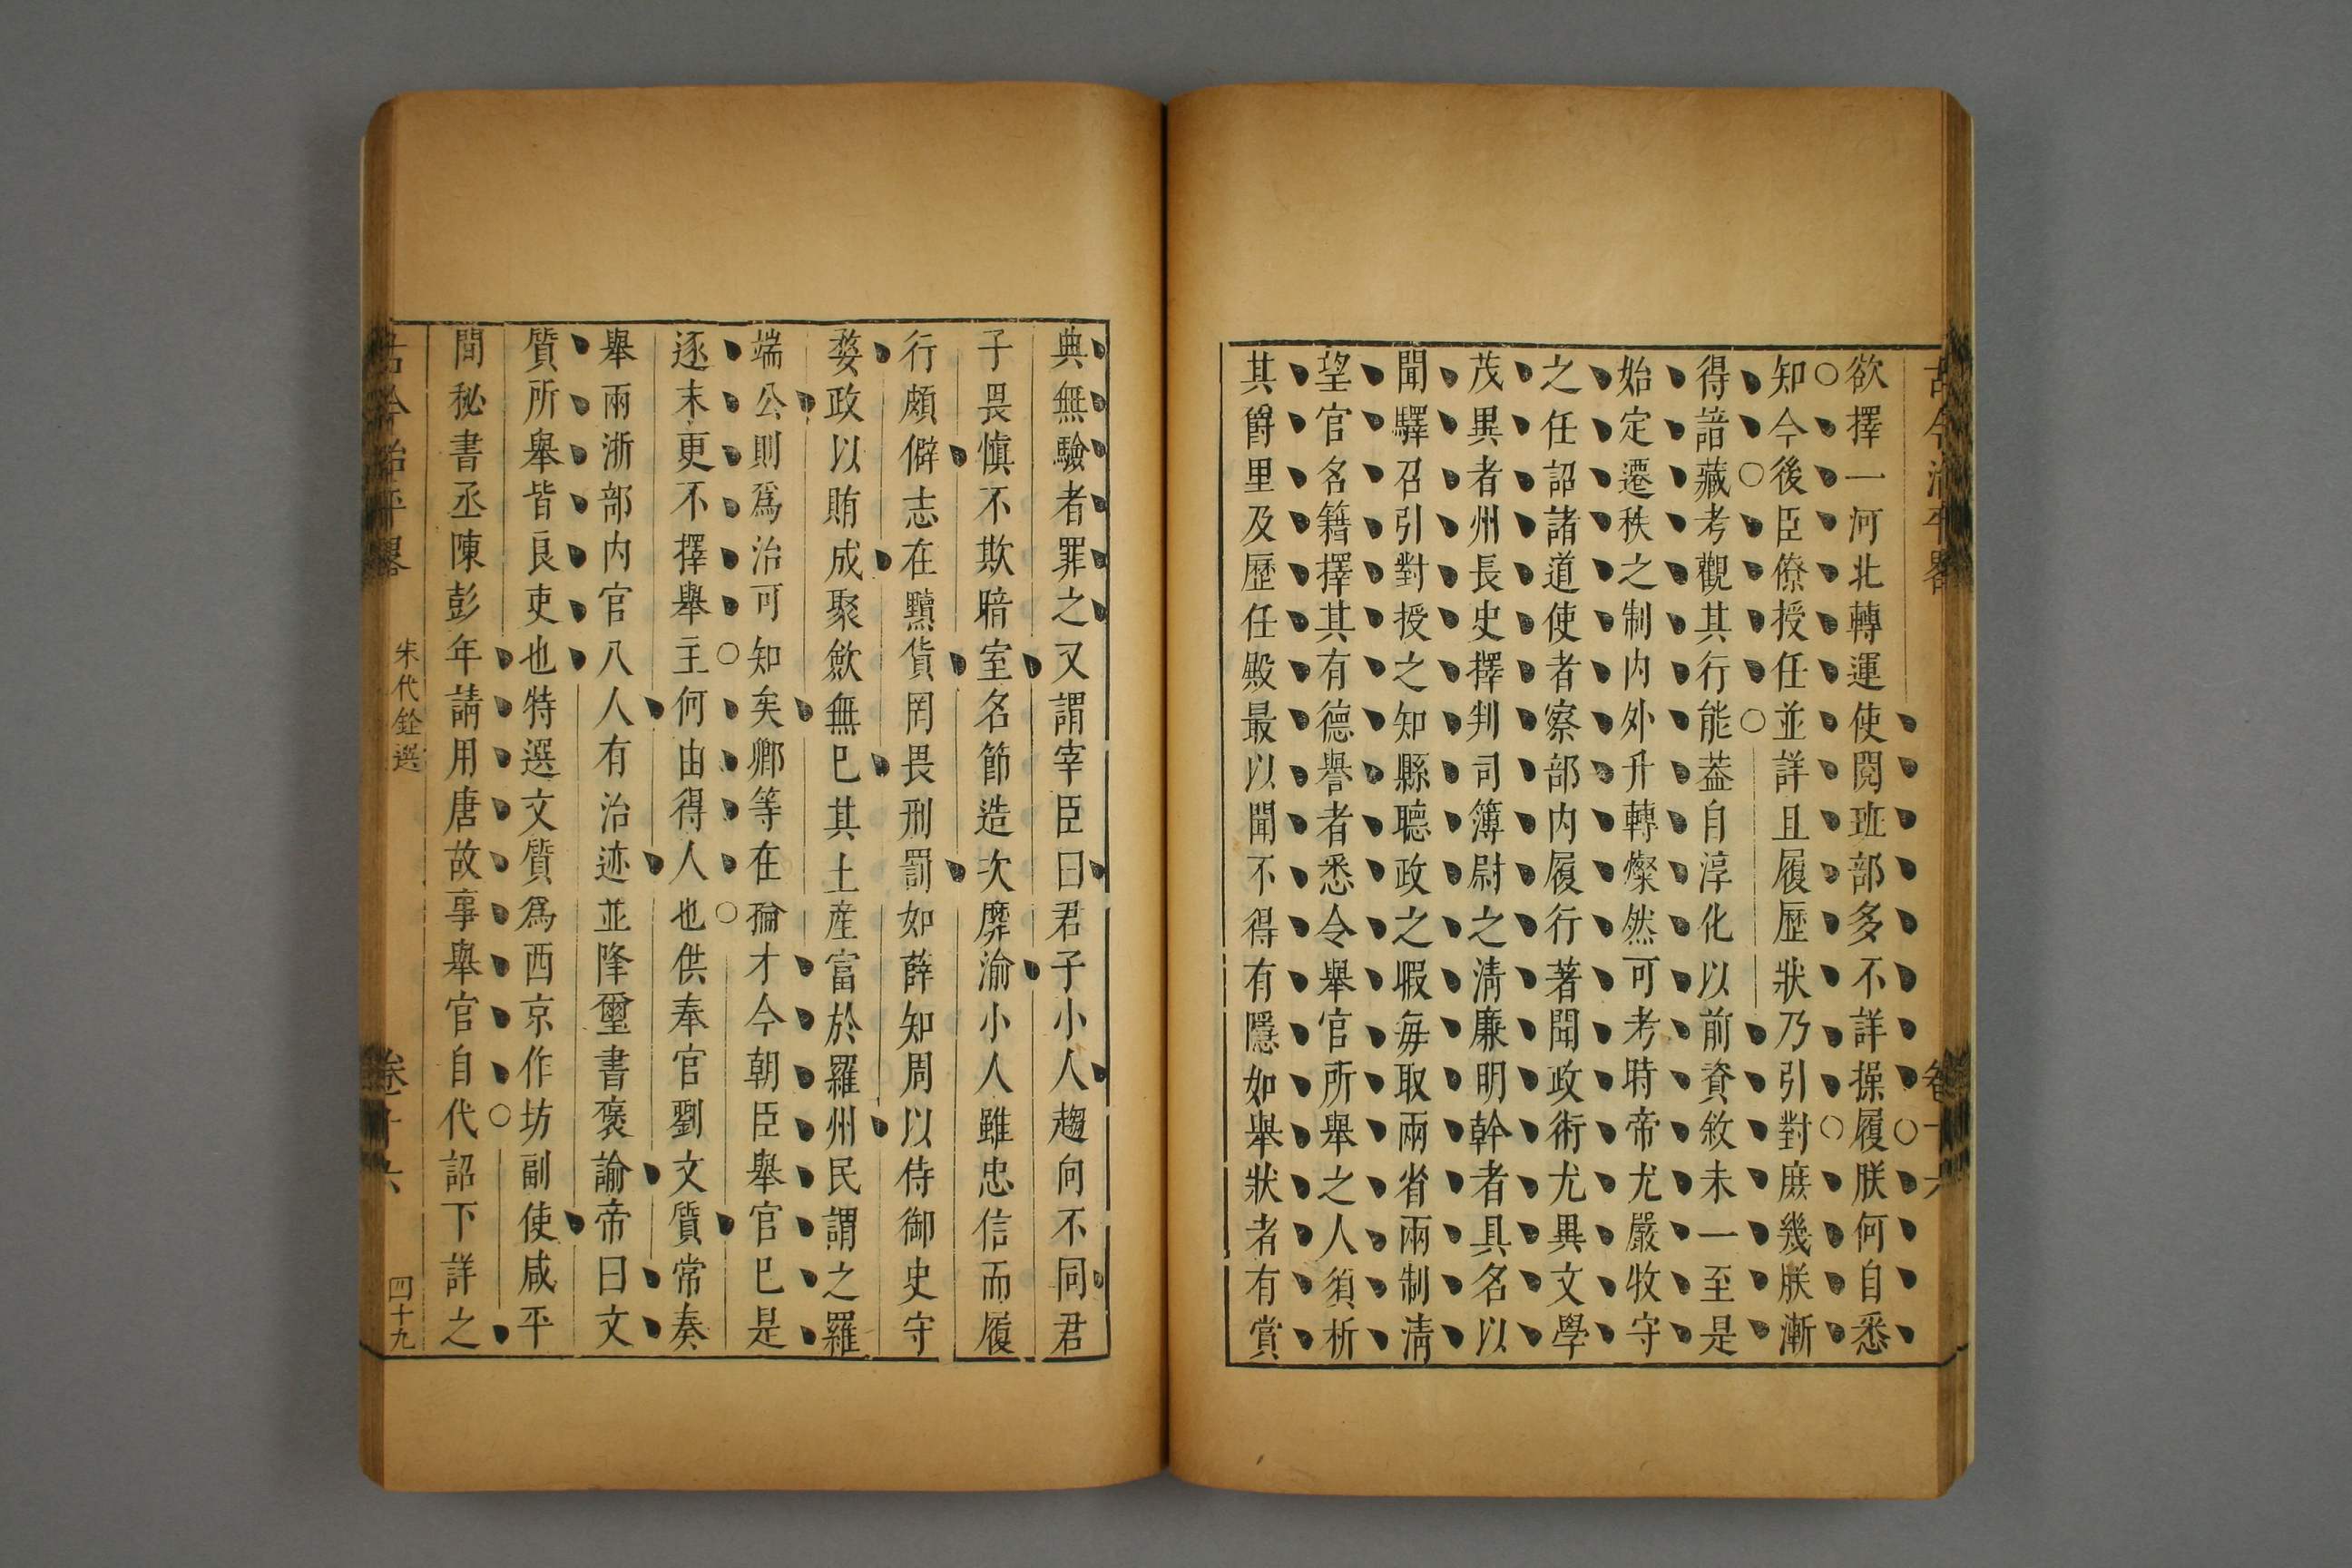 古今治平畧 卷十六
欲擇一河北轉運使閱班部多不詳操履朕何自悉
知今後臣僚授任並詳且履歷狀乃引對庶幾朕漸
得諳藏考觀其行能葢自淳化以前資敘未一至是
始定遷秩之制内外升轉燦然可考時帝尤嚴牧守
之任詔諸道使者察部内履行著聞政術尤異文學
茂異者州長史擇判司簿尉之淸廉明幹者具名以
聞驛召引對授之知縣聽政之暇每取兩省兩制淸
望官名籍擇其有德譽者悉令舉官所舉之人須析
其爵里及歷任殿最以聞不得有隱如舉狀者有賞
典無驗者罪之又謂宰臣曰君子小人趨向不同君
子畏慎不欺暗室名節造次靡渝小人雖忠信而履
行頗僻志在黷貨罔畏刑罰如薛知周以侍御史守
婺政以賄成聚斂無已其土產富於羅州民謂之羅
端公則爲治可知矣卿等在掄才今朝臣舉官已是
逐末更不擇舉主何由得人也供奉官劉文質常奏
舉兩浙部内官八人有治迹並降璽書褒諭帝曰文
質所舉皆良吏也特選文質爲西京作坊副使咸平
間秘書丞陳彭年請用唐故事舉官自代詔下詳之
古今治平畧 朱代銓選 卷十六 四十九